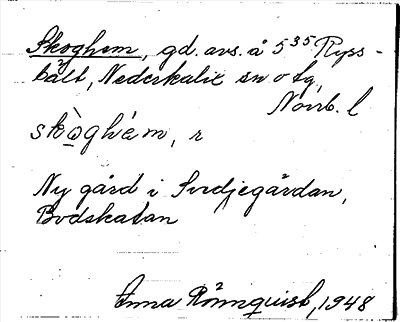 Skoghem, gd. avs. å 5³⁵ Ryss-
bält, Nederkalix sn o tg,
Norrb. l
skòghém, r
Ny gård i Svedjegårdan,
Bodskatan
Enna Rönnquist, 1948